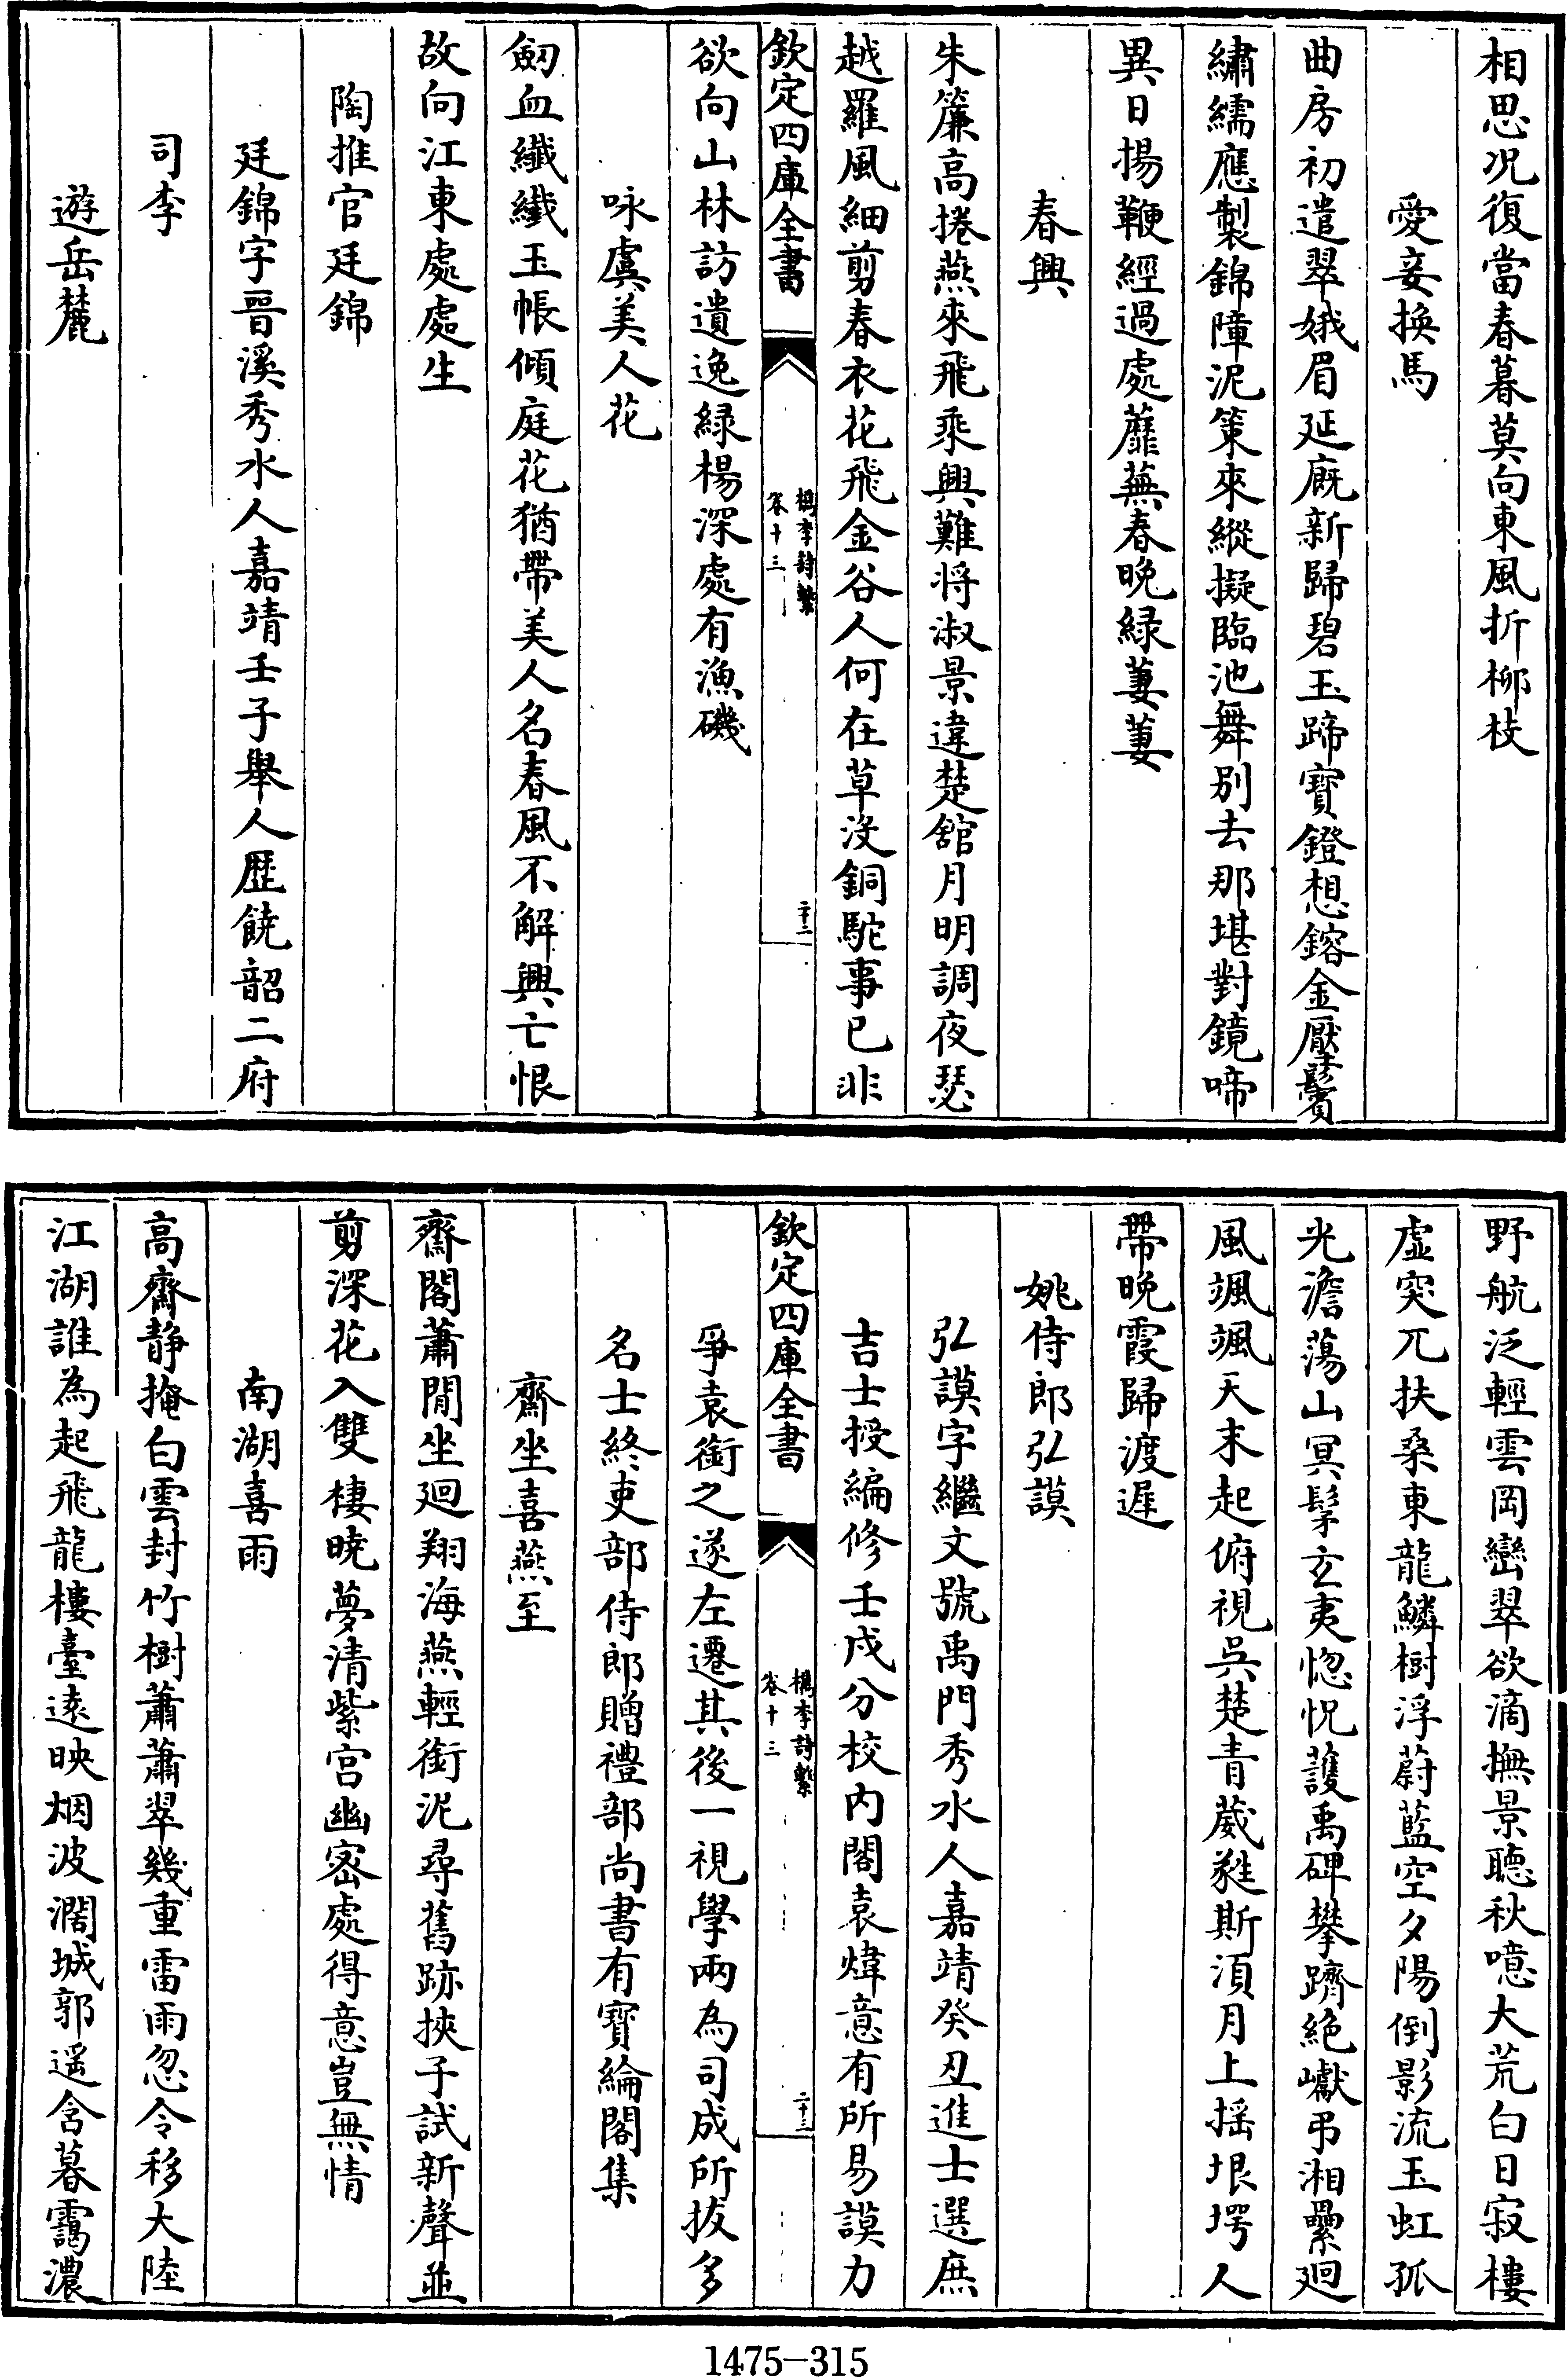 相思况復當春暮莫向東風折柳枝
愛妾換馬
曲房初遣翠娥眉延廐新歸碧玉蹄寶鐙想鎔金壓鬢
繡繻應製錦障泥策來縱擬臨池舞别去那堪對鏡啼
異日揚鞭經過處蘼蕪春晚緑萋萋
春興
朱簾高捲燕來飛乘興難将淑景違楚舘月明調夜瑟
越羅風細剪春衣花飛金谷人何在草没銅駝事已非
欽定四庫全書
檇李詩繫
卷十三
二十二
欲向山林訪遺逸緑楊深處有漁磯
咏虞美人花
劒血纖纖玉帳傾庭花猶帶美人名春風不解興亡恨
故向江東處處生
陶推官廷錦
廷錦字晋溪秀水人嘉靖壬子舉人歴饒韶二府
司李
遊岳麓
野航泛輕雲岡巒翠欲滴撫景聴秋噫大荒白日寂樓
虚突兀扶桑東龍鱗樹浮蔚藍空夕陽倒影流玉虹孤
光澹蕩山冥髳玄夷惚怳護禹碑攀躋絶巘弔湘纍廻
風颯颯天末起俯視吳楚青葳蕤斯湏月上揺垠堮人
帶晚霞歸渡遲
姚侍郎弘謨
弘謨字繼文號禹門秀水人嘉靖癸丑進士選庶
吉士授編修壬戌分校内閣袁煒意有所易謨力
欽定四庫全書
檇李詩繫
卷十三
二十三
爭袁銜之遂左遷其後一視學兩為司成所拔多
名士終吏部侍郎贈禮部尚書有寳綸閣集
齋坐喜燕至
齋閣蕭閒坐廻翔海燕輕銜泥尋舊跡挾子試新聲並
剪深花入雙棲曉夢清紫宫幽宻處得意豈無情
南湖喜雨
高齋静掩白雲封竹樹蕭蕭翠幾重雷雨忽令移大陸
江湖誰為起飛龍樓臺逺映烟波濶城郭遥含暮靄濃
1475-315